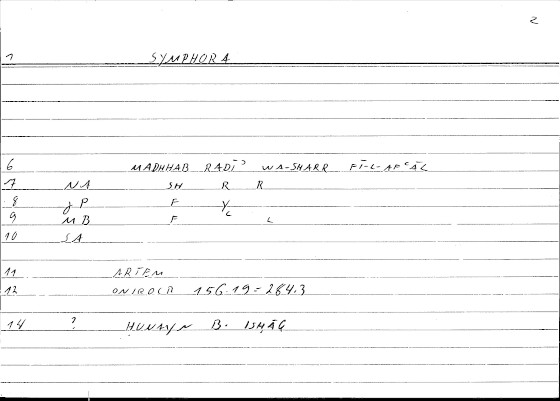 2
1 SYMPHORA
6 MADHHAB RADĪʾ WA-SHARR FĪ-L-AFʿĀL
7 NA SH R R
8 JP F Y
9 MB F ʿ L
10 SA
11 ARTEM
12 ONIROCR 156.19 = 284.3
14 ? HUNAYN B. ISHĀQ